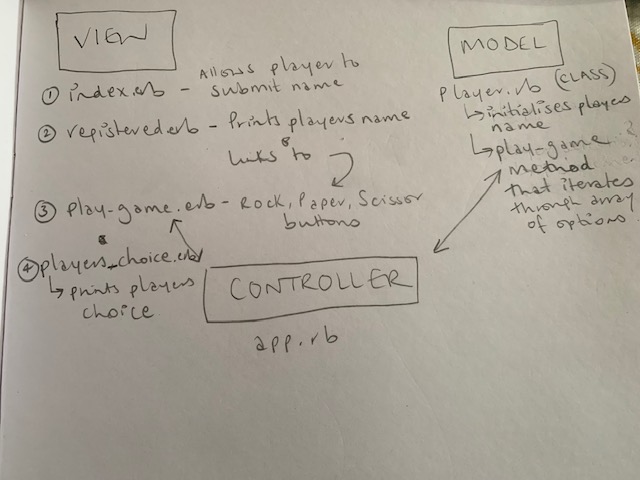 VIEW
① index.erb - Allows player to
submit name
② registered.erb - Prints players name
& links to
③ play-game.erb - Rock, Paper, Scissor
buttons
④ players_choice.erb
↳ prints players
choice
MODEL
player.rb (CLASS)
↳ initialises players
name
↳ play-game
method
that iterates
through array
of options
CONTROLLER
app.rb